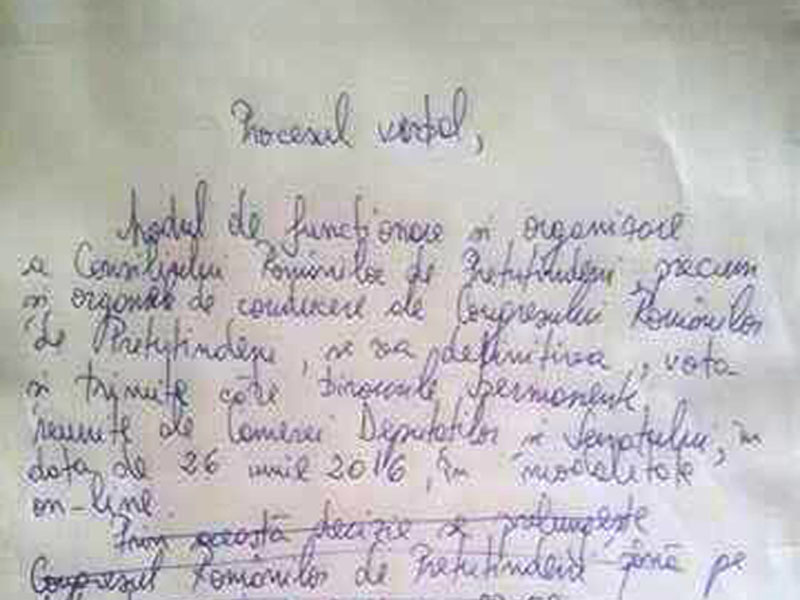 Procesul verbal,
Modul de funcționare și organizare
a Consiliului Românilor de Pretutindeni, precum
și organele de conducere ale Congresului Românilor
de Pretutindeni, se va definitiva, vota
și trimite către birourile permanente
reunite ale Camerei Deputaților și Senatului, în
data de 26 iunie 2016, în modalitate
on-line.
Prin această decizie se prelungește
Congresul Românilor de Pretutindeni până pe